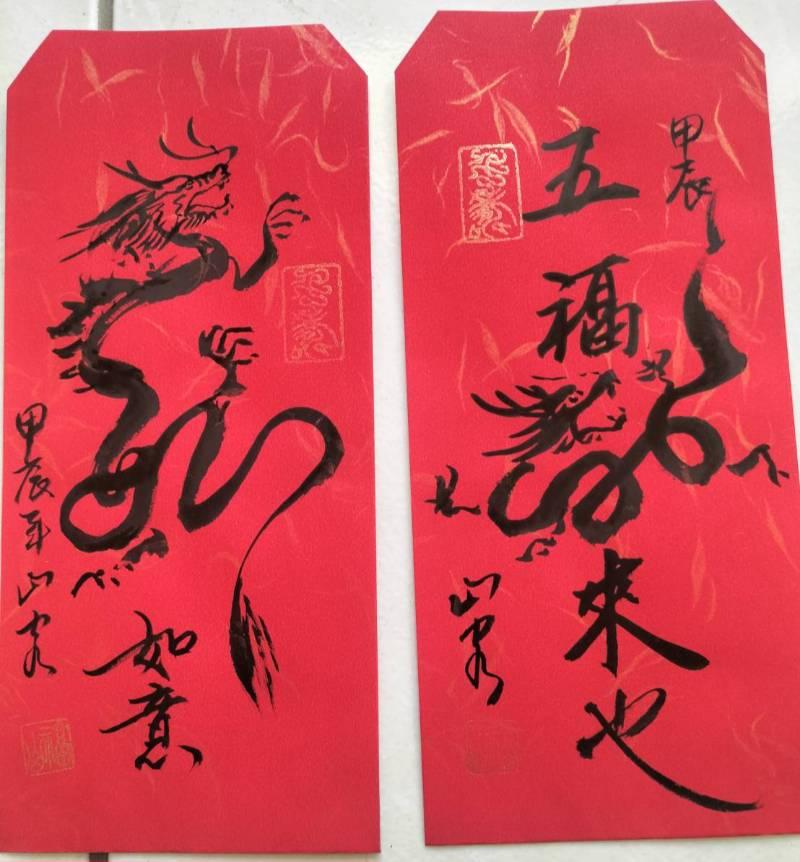 甲辰年山客
如意
甲辰
五福
來也
山客